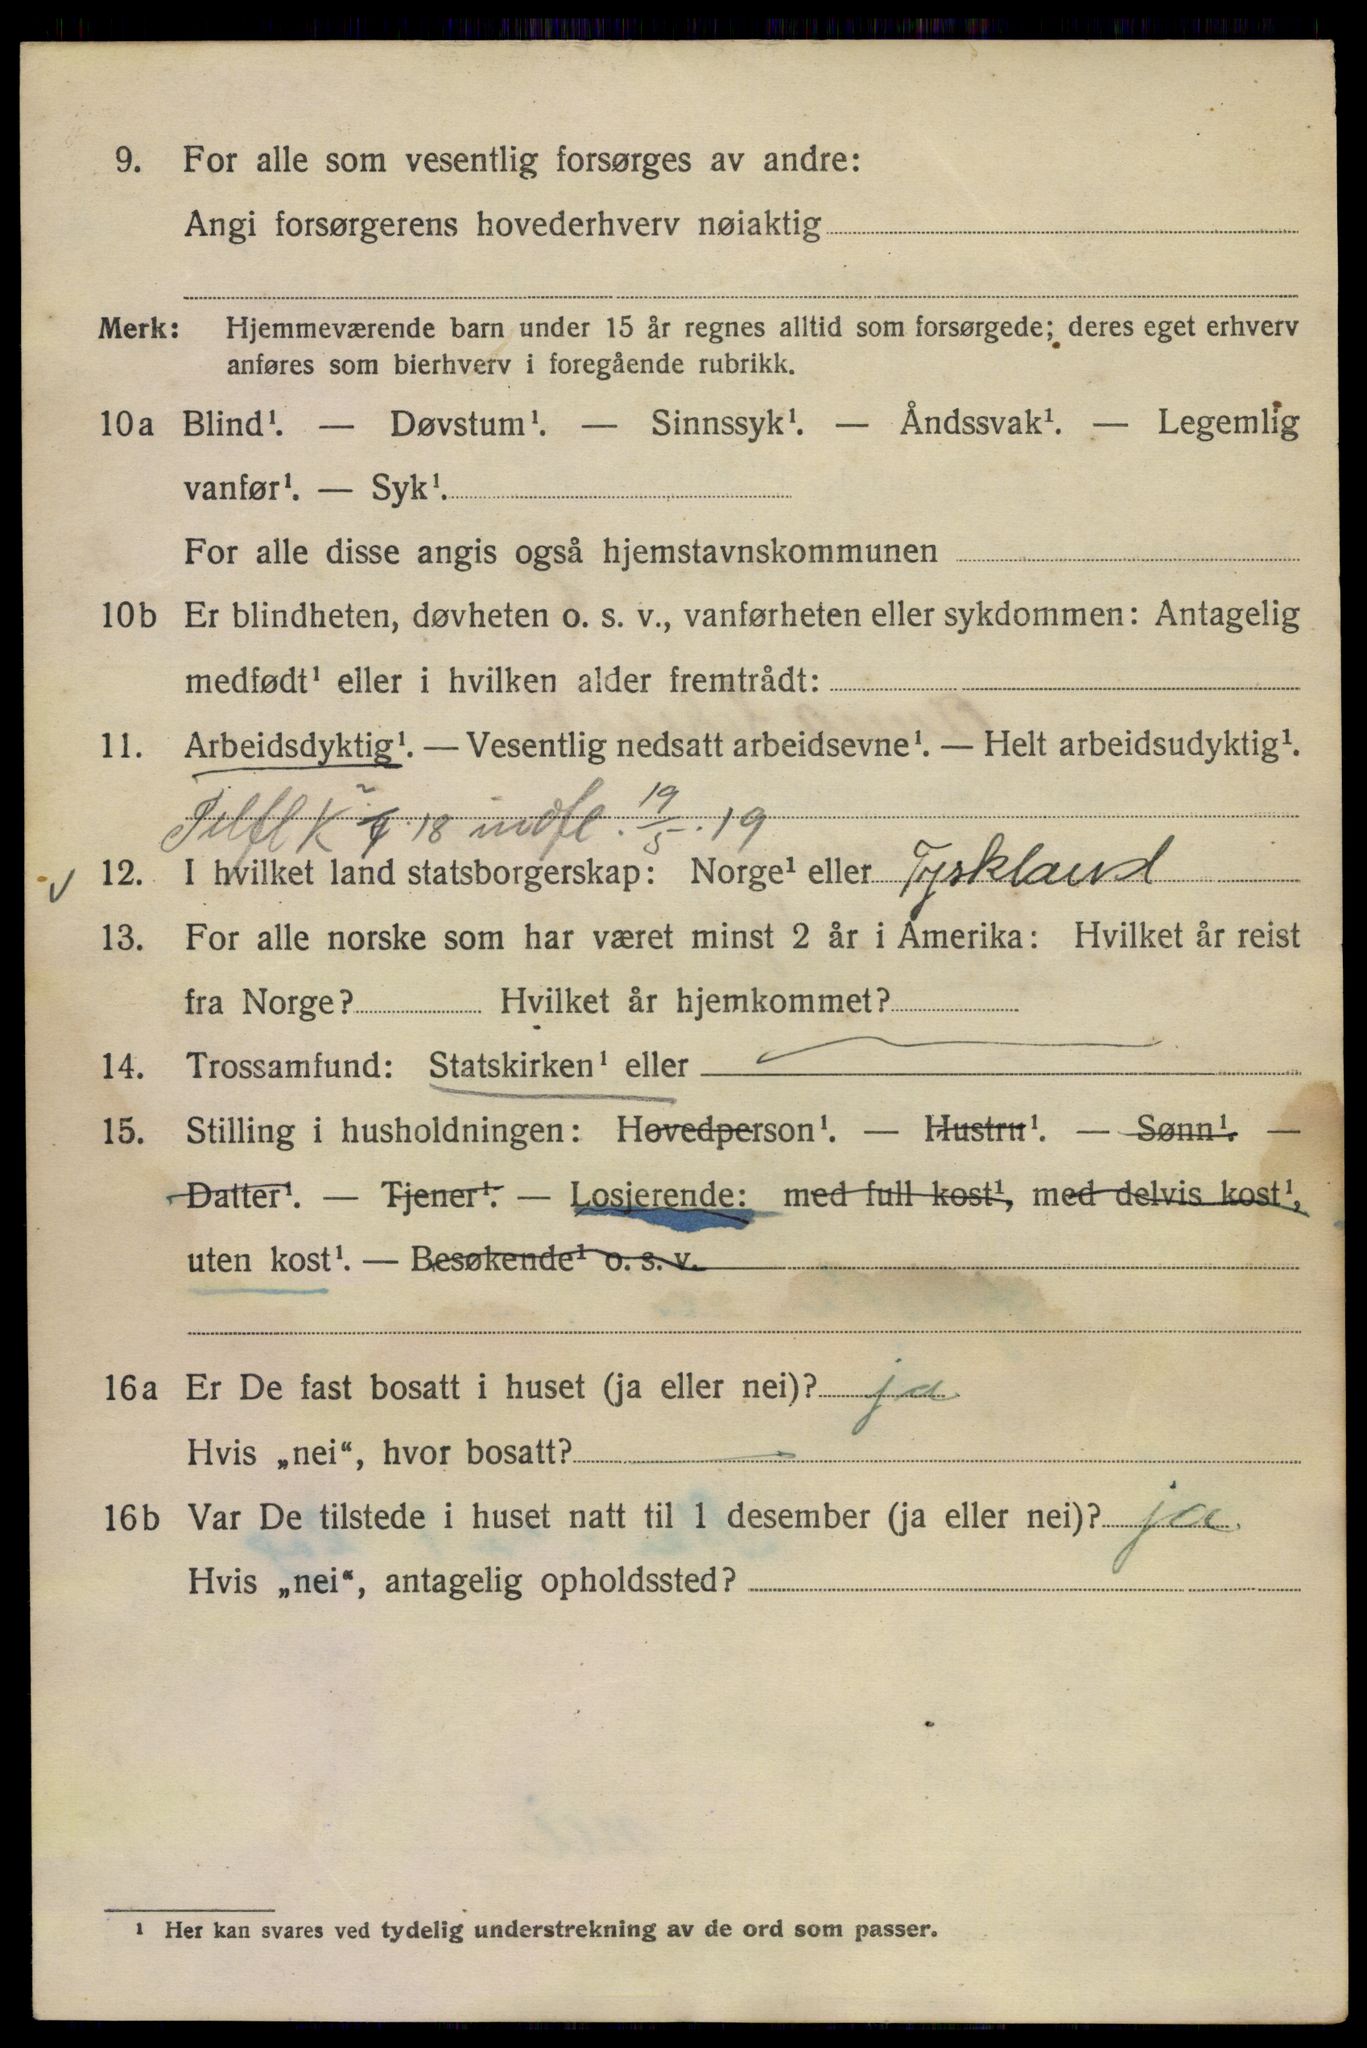 9. For alle som vesentlig forsørges av andre:
Angi forsørgerens hovederhverv nøiaktig
Merk: Hjemmeværende barn under 15 år regnes alltid som forsørgede; deres eget erhverv
anføres som bierhverv i foregående rubrikk.
10a Blind¹. — Døvstum¹. — Sinnssyk¹. — Åndssvak¹. — Legemlig
vanfør¹. — Syk¹.
For alle disse angis også hjemstavnskommunen
10b Er blindheten, døvheten o. s. v., vanførheten eller sykdommen: Antagelig
medfødt¹ eller i hvilken alder fremtrådt:
11. Arbeidsdyktig¹. — Vesentlig nedsatt arbeidsevne¹. — Helt arbeidsudyktig¹.
Tilfl K 18 indfl. 19/5.19
12. I hvilket land statsborgerskap: Norge¹ eller Tyskland
13. For alle norske som har været minst 2 år i Amerika: Hvilket år reist
fra Norge? Hvilket år hjemkommet?
14. Trossamfund: Statskirken¹ eller
15. Stilling i husholdningen: Hovedperson¹. — Hustru¹. — Sønn¹. —
Datter¹. — Tjener¹. — Losjerende: med full kost¹, med delvis kost¹,
uten kost¹. — Besøkende¹ o. s. v.
16a Er De fast bosatt i huset (ja eller nei)? ja
Hvis „nei“, hvor bosatt?
16b Var De tilstede i huset natt til 1 desember (ja eller nei)? ja
Hvis „nei“, antagelig opholdssted?
¹ Her kan svares ved tydelig understrekning av de ord som passer.